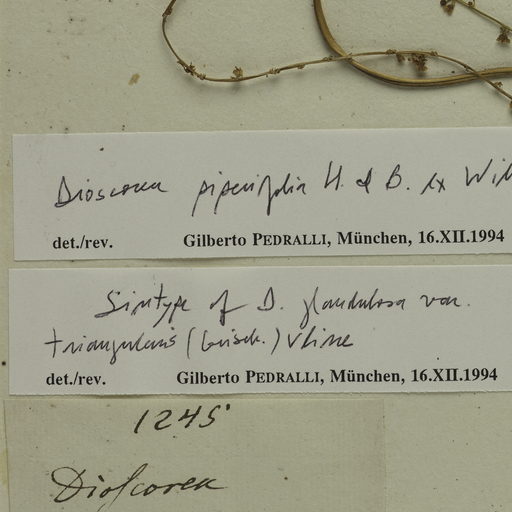 Dioscorea piperifolia H. & B. ex Will
det./rev. Gilberto PEDRALLI, München, 16.XII.1994
Sintype of D. glandulosa var.
triangularis (Grisek.) Uline
det./rev. Gilberto PEDRALLI, München, 16.XII.1994
1245
Dioscorea